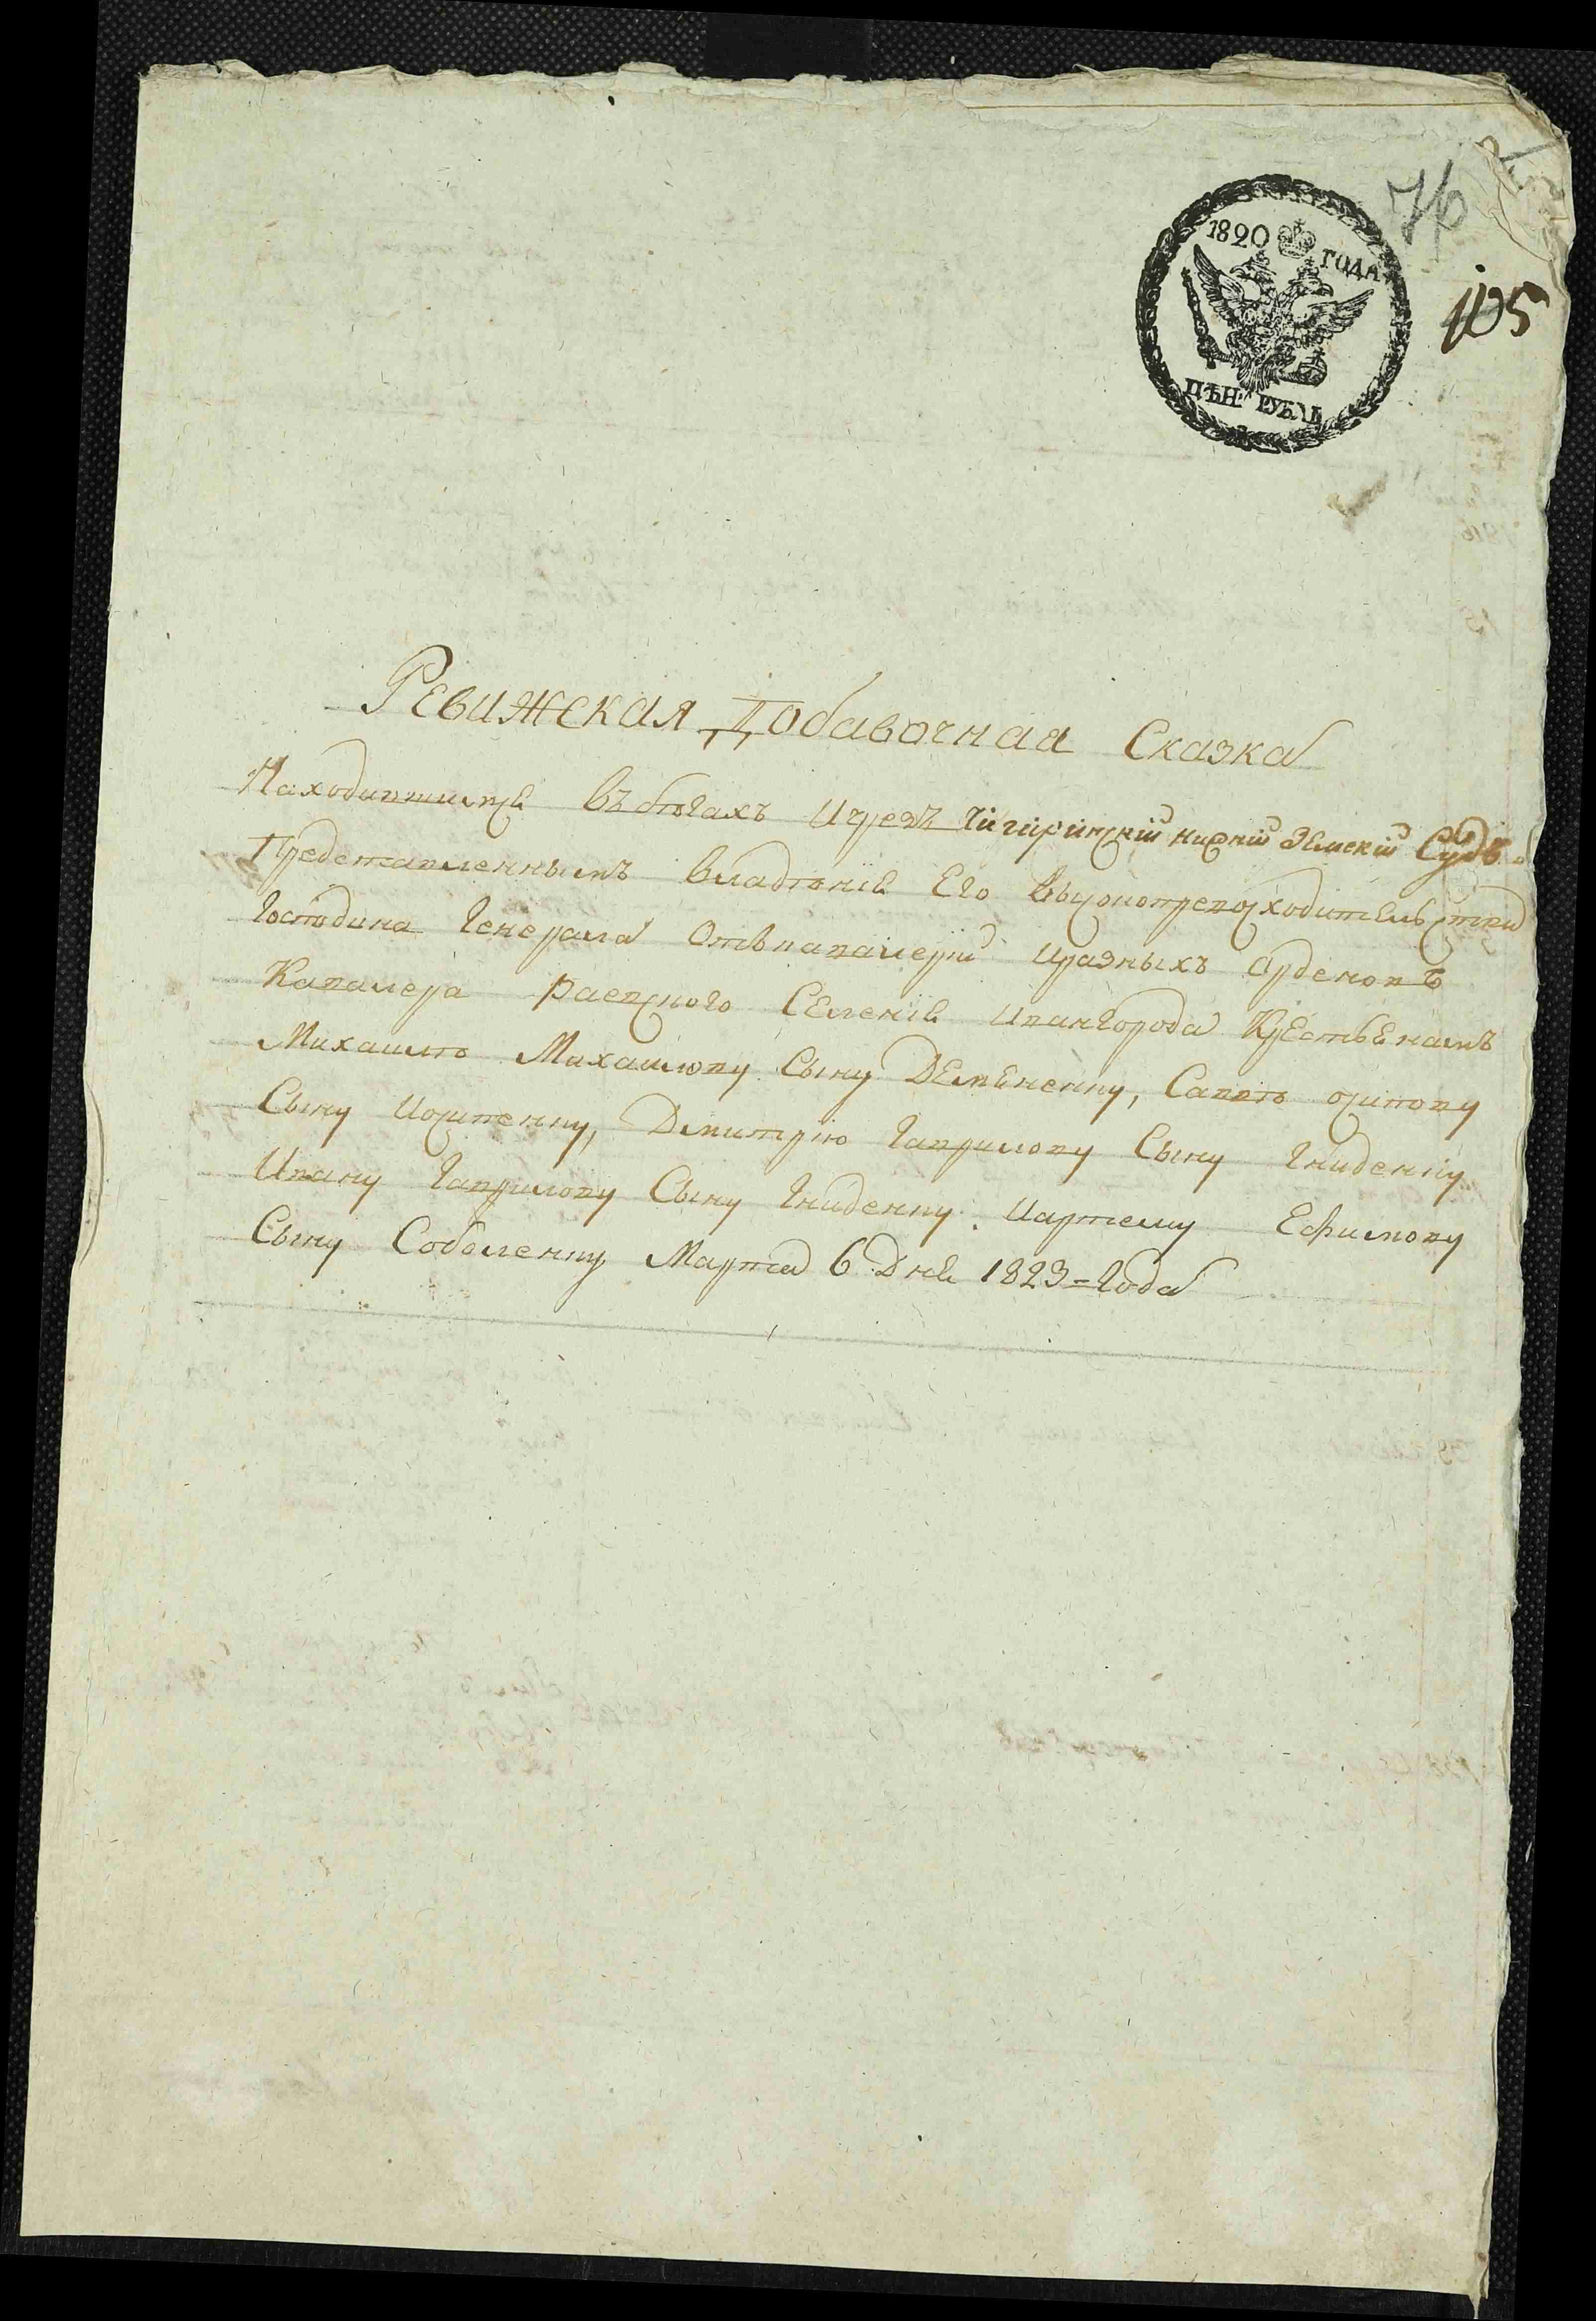 1820 ГОДА
ЦѢН: РУБЛЬ
76
105
Ревижская Добавочная Сказка
Находившимся въ бѣгахъ Ичрезъ Чигиринский нижний Земский Судъ
Представленнымъ владѣние Его Высокопревосходительства
Господина Генерала Откавалерии Иразныхъ Орденовъ
Кавалера Раевского Селения Ивангорода Крестьенамъ
Михаилѣ Михаилову Сыну Демененку, Саввѣ осипову
Сыну Иосипенку, Дмитрию Гаврилову Сыну Гниденку
Ивану Гаврилову Сыну Гниденку. Иартему Ефимову
Сыну Соболенку Марта 6 Дня 1823=Года